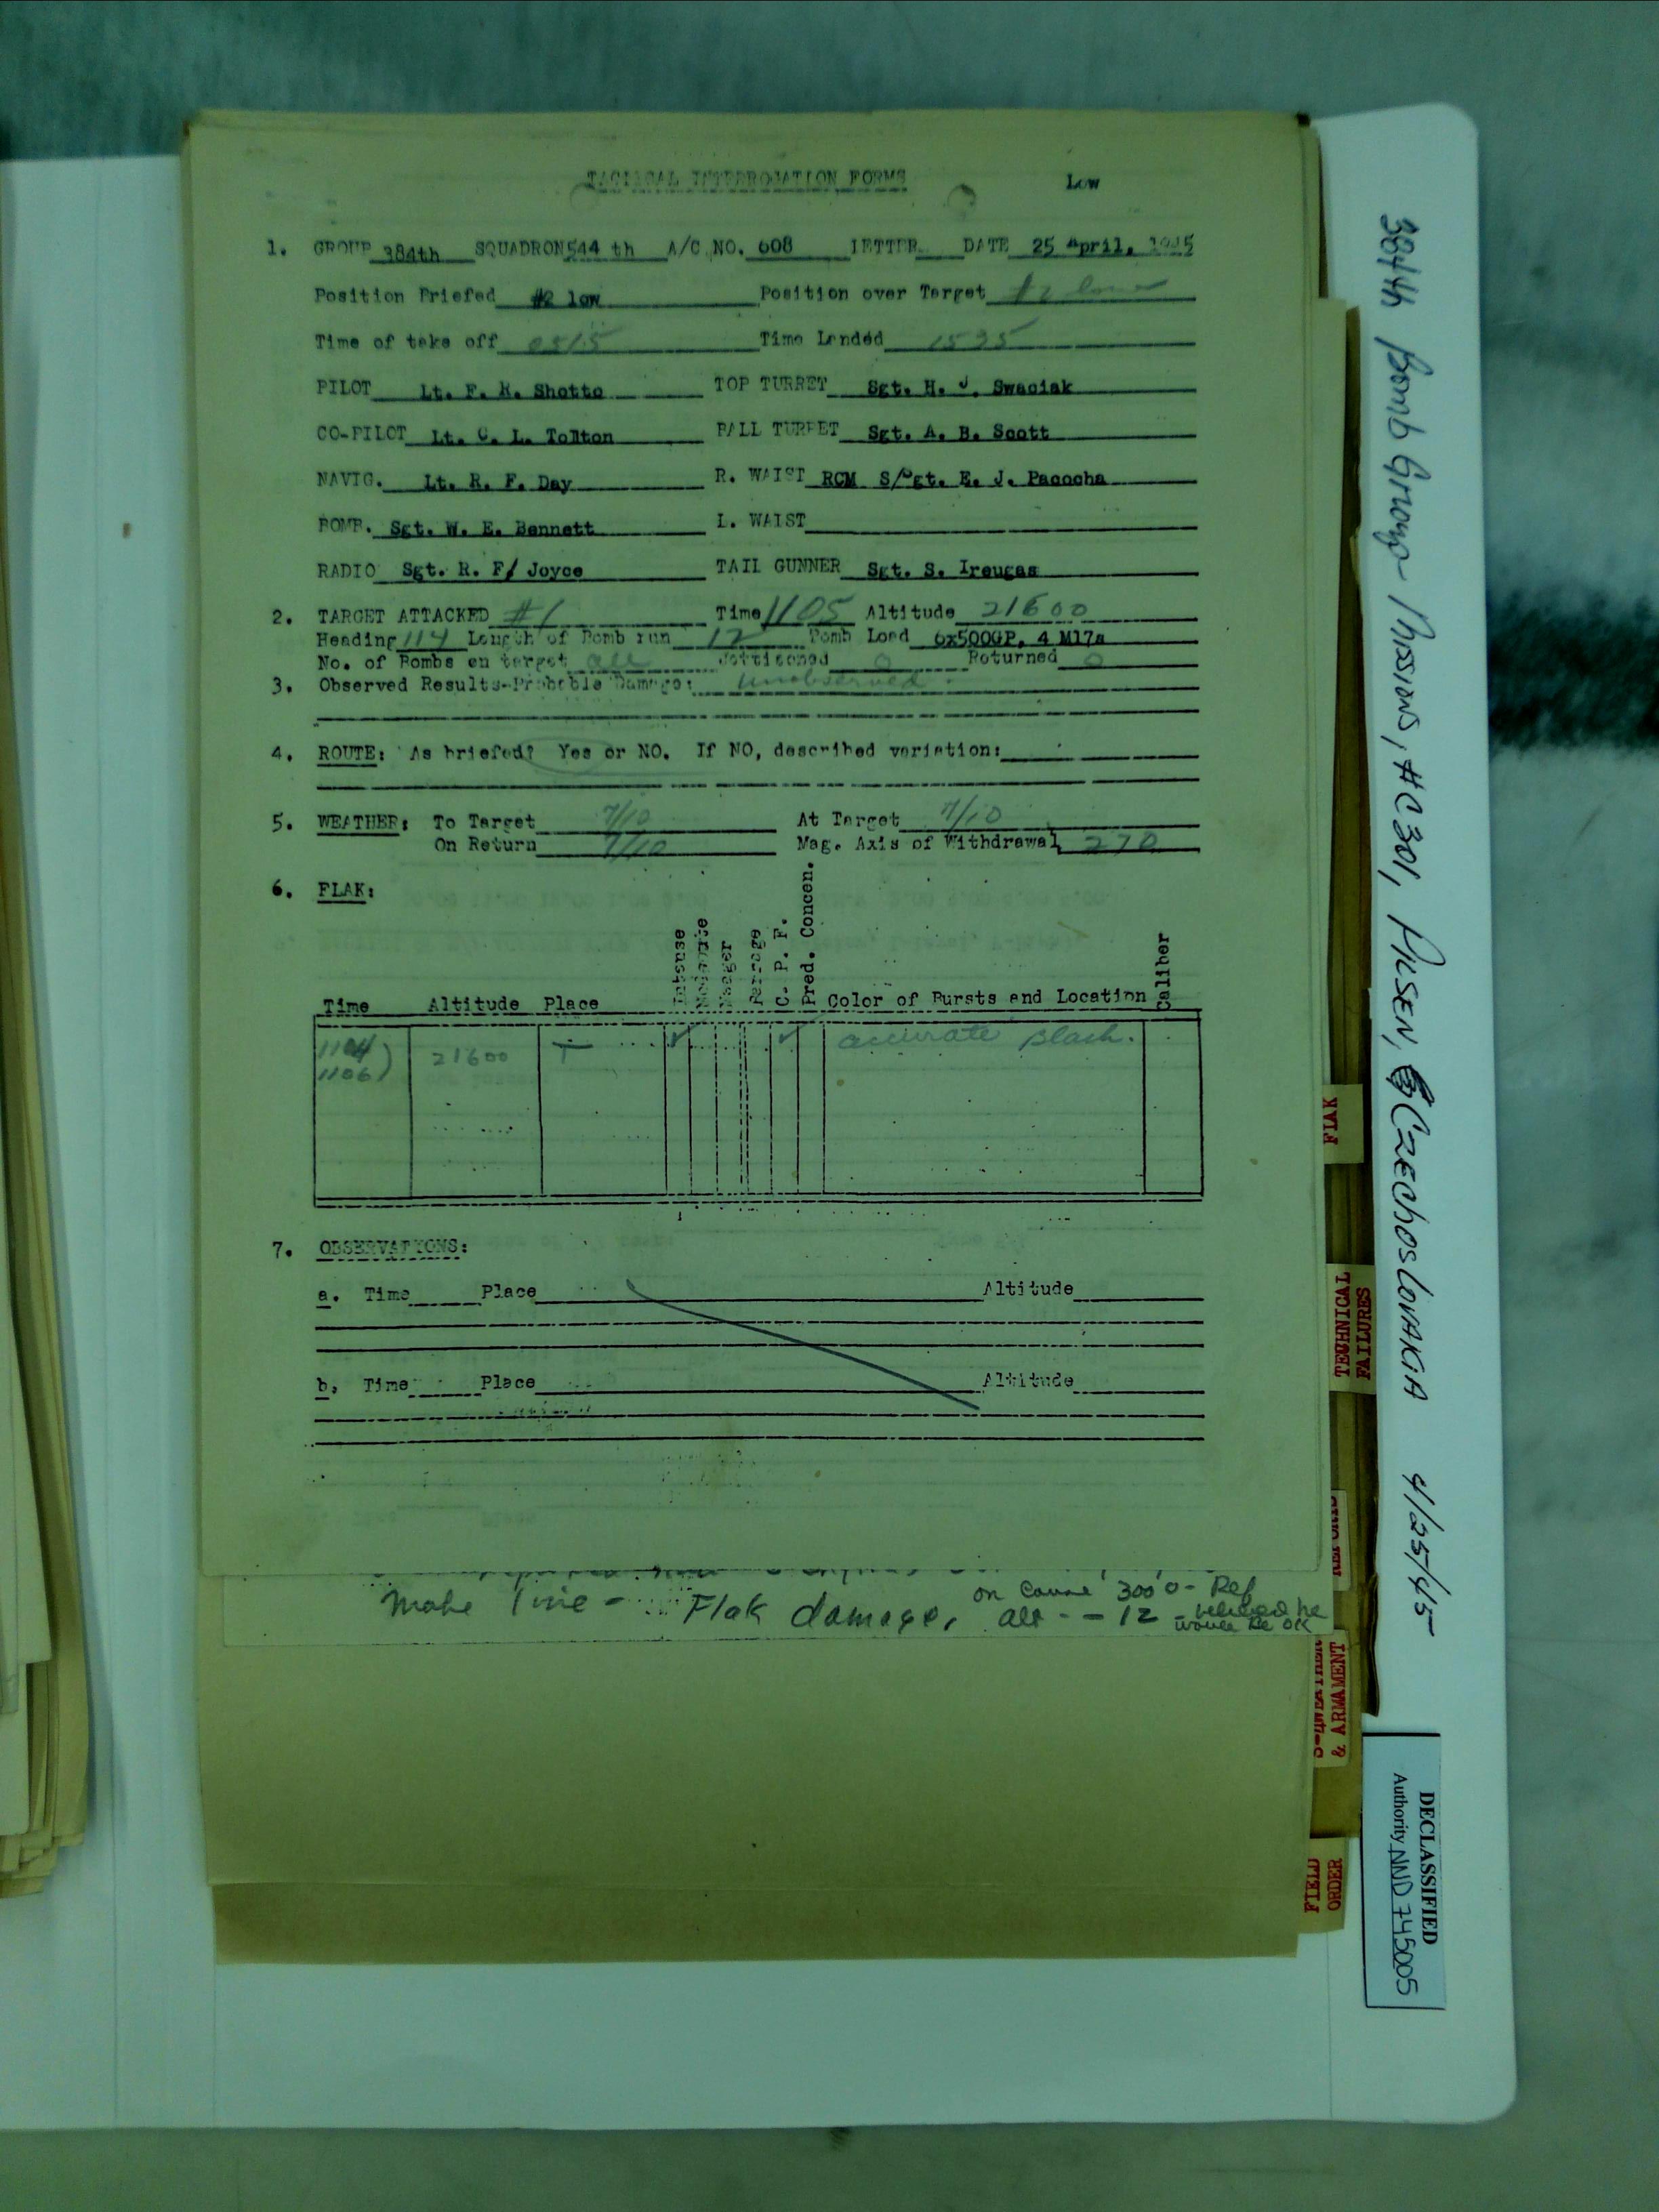 TACTICAL INTERROGATION FORMS Low
1. GROUP 384th SQUADRON 544 th A/C NO. 608 LETTER DATE 25 April, 1945
Position Briefed #2 low Position over Target #2 low
Time of take off 0515 Time Landed 1535
PILOT Lt. F. R. Shotto TOP TURRET Sgt. H. J. Swaciak
CO-PILOT Lt. C. L. Tollton BALL TURRET Sgt. A. B. Scott
NAVIG. Lt. R. F. Day R. WAIST RCM S/Sgt. E. J. Pacocha
BOMB. Sgt. W. E. Bennett L. WAIST
RADIO Sgt. R. F/ Joyce TAIL GUNNER Sgt. S. Ireugas
2. TARGET ATTACKED #1 Time 1105 Altitude 21600
Heading 114 Length of Bomb run 12 Bomb Load 6x500GP, 4 M17s
No. of Bombs on target all Jettisoned 0 Returned 0
3. Observed Results-Probable Damage: unobserved.
4. ROUTE: As briefed? Yes or NO. If NO, described variation:
5. WEATHER: To Target 7/10 At Target 7/10
On Return 7/10 Mag. Axis of Withdrawal 270
6. FLAK:
Time Altitude Place Intense Moderate Meager Barrage C. P. F. Pred. Concen. Color of Bursts and Location Caliber
1104) 21600 T ✓ ✓ accurate black.
1106)
7. OBSERVATIONS:
a. Time Place Altitude
b. Time Place Altitude
on Course 300° - Ref
Make line - Flak damage, alt - - 12 - believed he
would be OK
384th Bomb Group Missions, #C301, PILSEN, CZEChosLovAKiA 4/25/45
FLAK
TECHNICAL
FAILURES
& ARMAMENT
FIELD
ORDER
DECLASSIFIED
Authority NND 745005